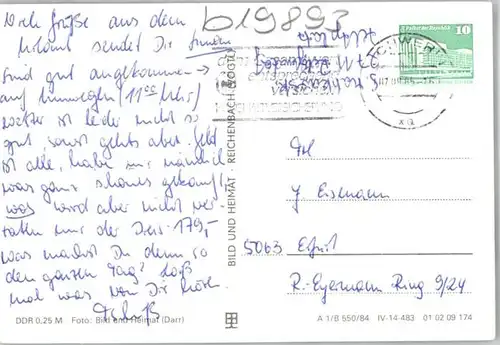 b19893
Viele Grüße aus dem
Urlaub sendet Dir
sind gut angekommen →
auf Umwegen (11⁰⁰ Uhr)
Wetter ist leider nicht so
gut, sonst gehts aber. Geld
ist alle, habe mir nämlich
was ganz schönes gekauft
was wird aber nicht ver-
raten nur der Preis 179,-
was machst Du denn so
den ganzen Tag? Laß
mal was von Dir hören.
BILD UND HEIMAT · REICHENBACH (VOGTL)
10
Frl
J. Eismann
5063 Erfurt
R.-Eyermann Ring 9/24
DDR 0,25 M Foto: Bild und Heimat (Darr)
A 1/B 550/84 IV-14-483 01 02 09 174